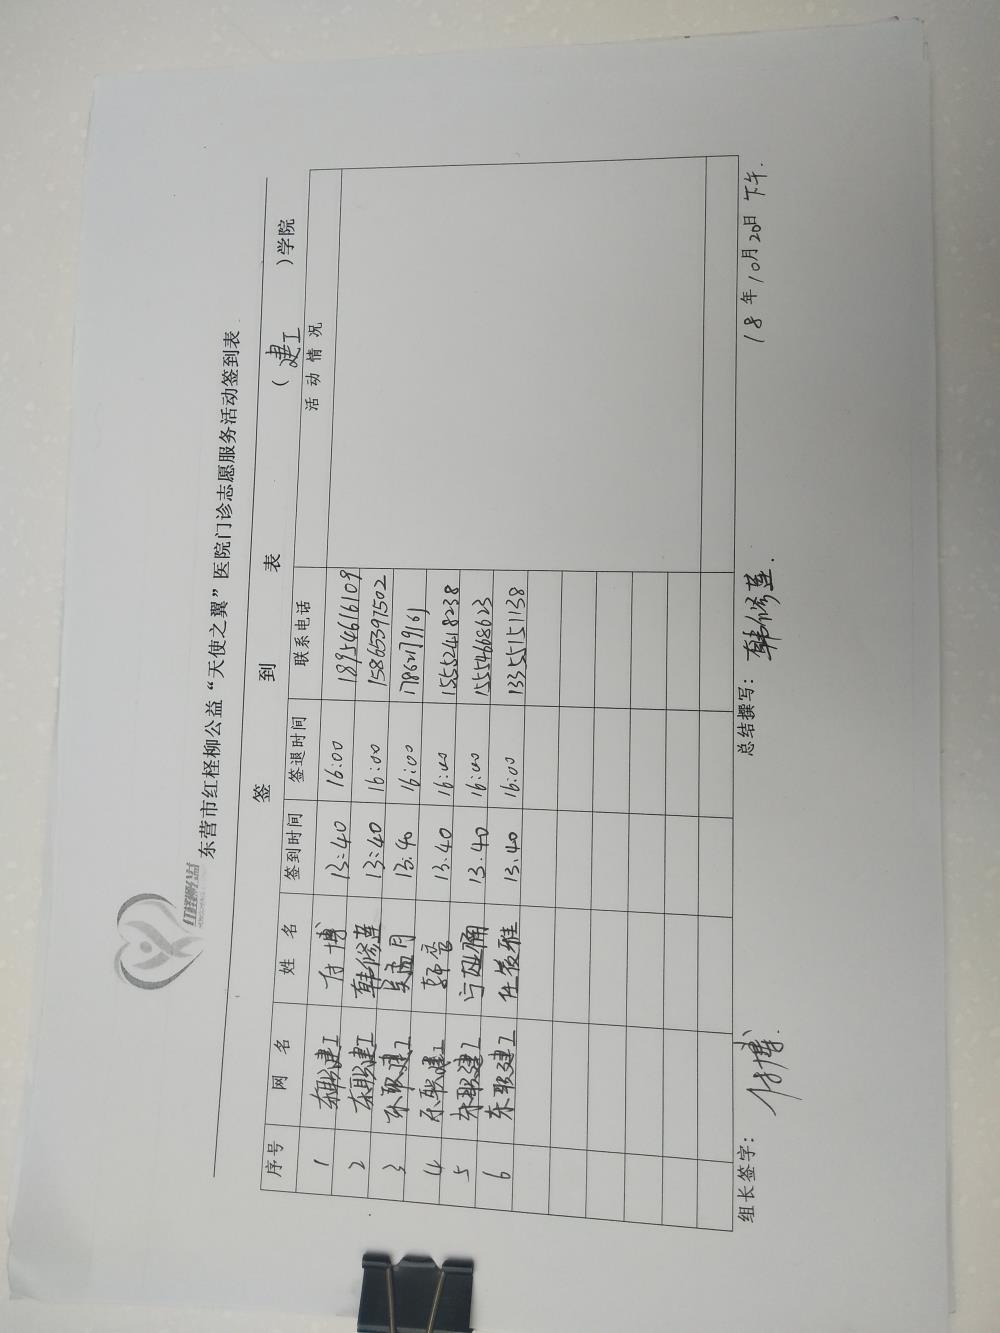 红柽柳公益
东营市红柽柳公益“天使之翼”医院门诊志愿服务活动签到表
签 到 表 (建工)学院
序号 网 名 姓 名 签到时间 签退时间 联系电话 活动情况
1 东职建工 付博 13:40 16:00 18954616109
2 东职建工 韩修莲 13:40 16:00 15865397502
3 东职建工 吴孟月 13:40 16:00 17862179161
4 东职建工 韩雪 13.40 16:00 15552418238
5 东职建工 13.40 16:00 15554668623
6 东职建工 任筱雅 13.40 16:00 13355151138
组长签字: 付博. 总结撰写: 韩修莲. 18年10月20日 下午.